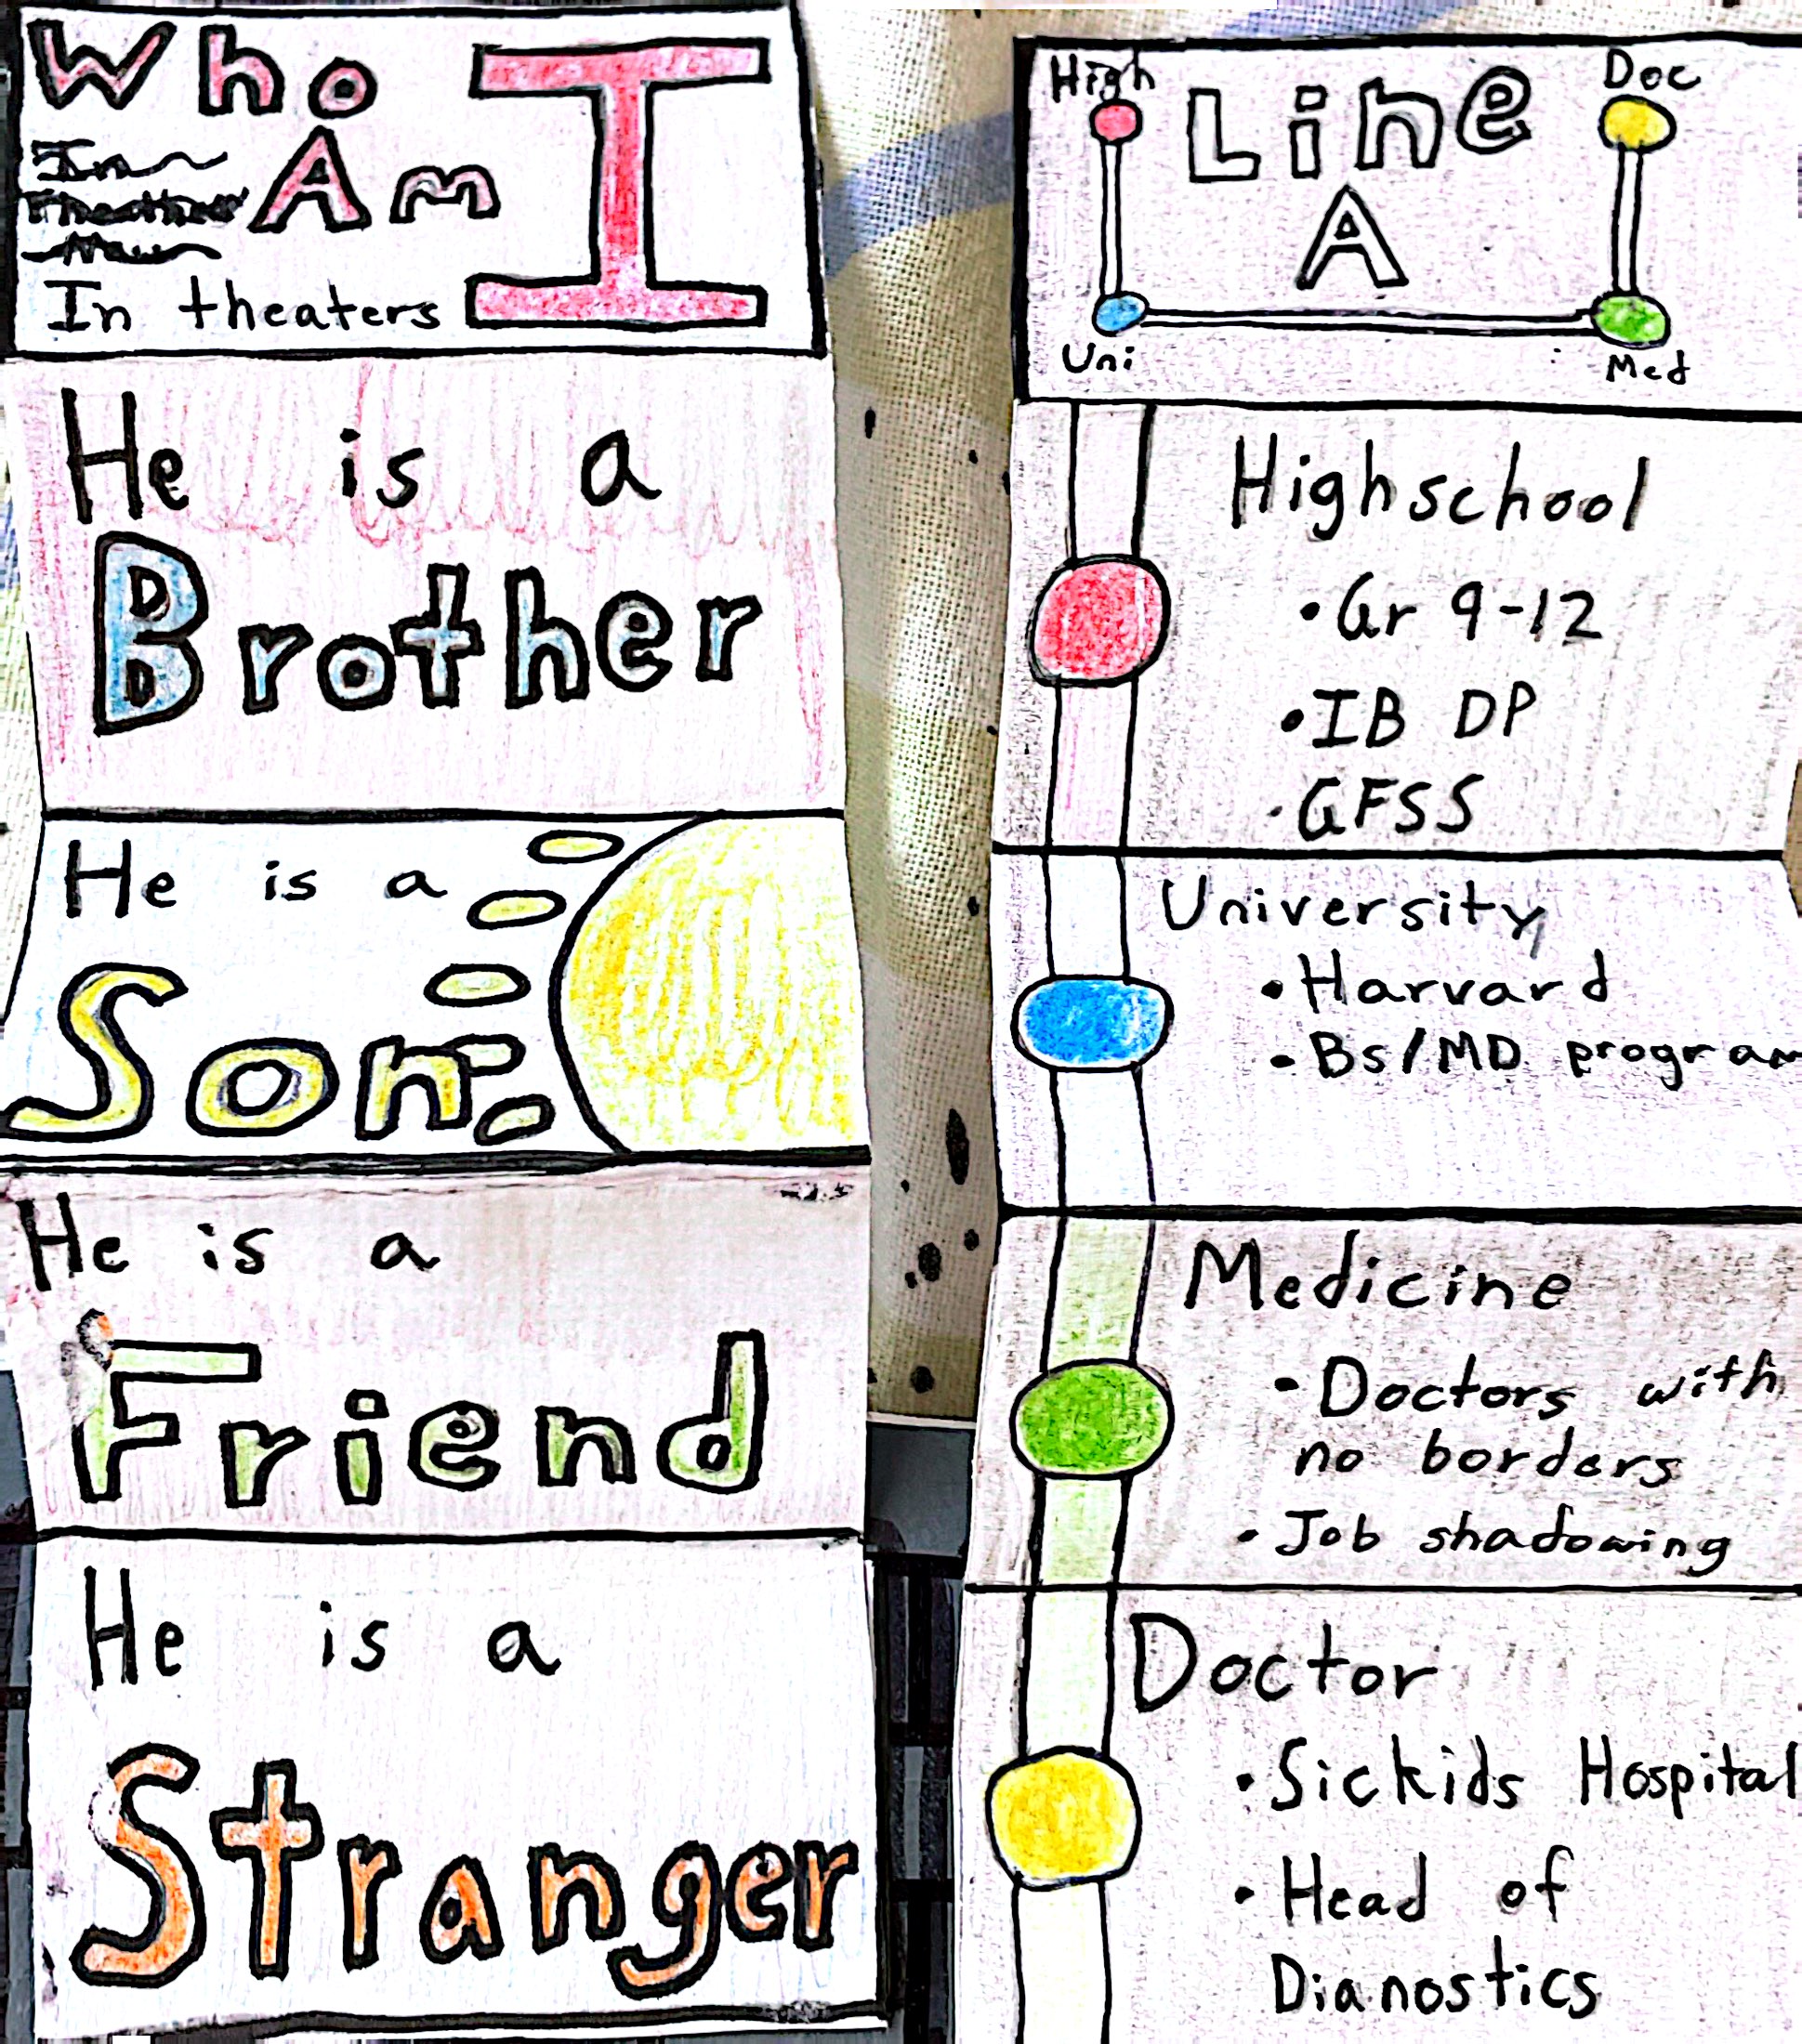 Who
Am I
In theaters
He is a
Brother
He is a
Son
He is a
Friend
He is a
Stranger
High
Doc
Line
A
Uni
Med
Highschool
• Gr 9-12
• IB DP
• GFSS
University
• Harvard
• Bs/MD program
Medicine
• Doctors with
no borders
• Job shadowing
Doctor
• Sickids Hospital
• Head of
Dianostics